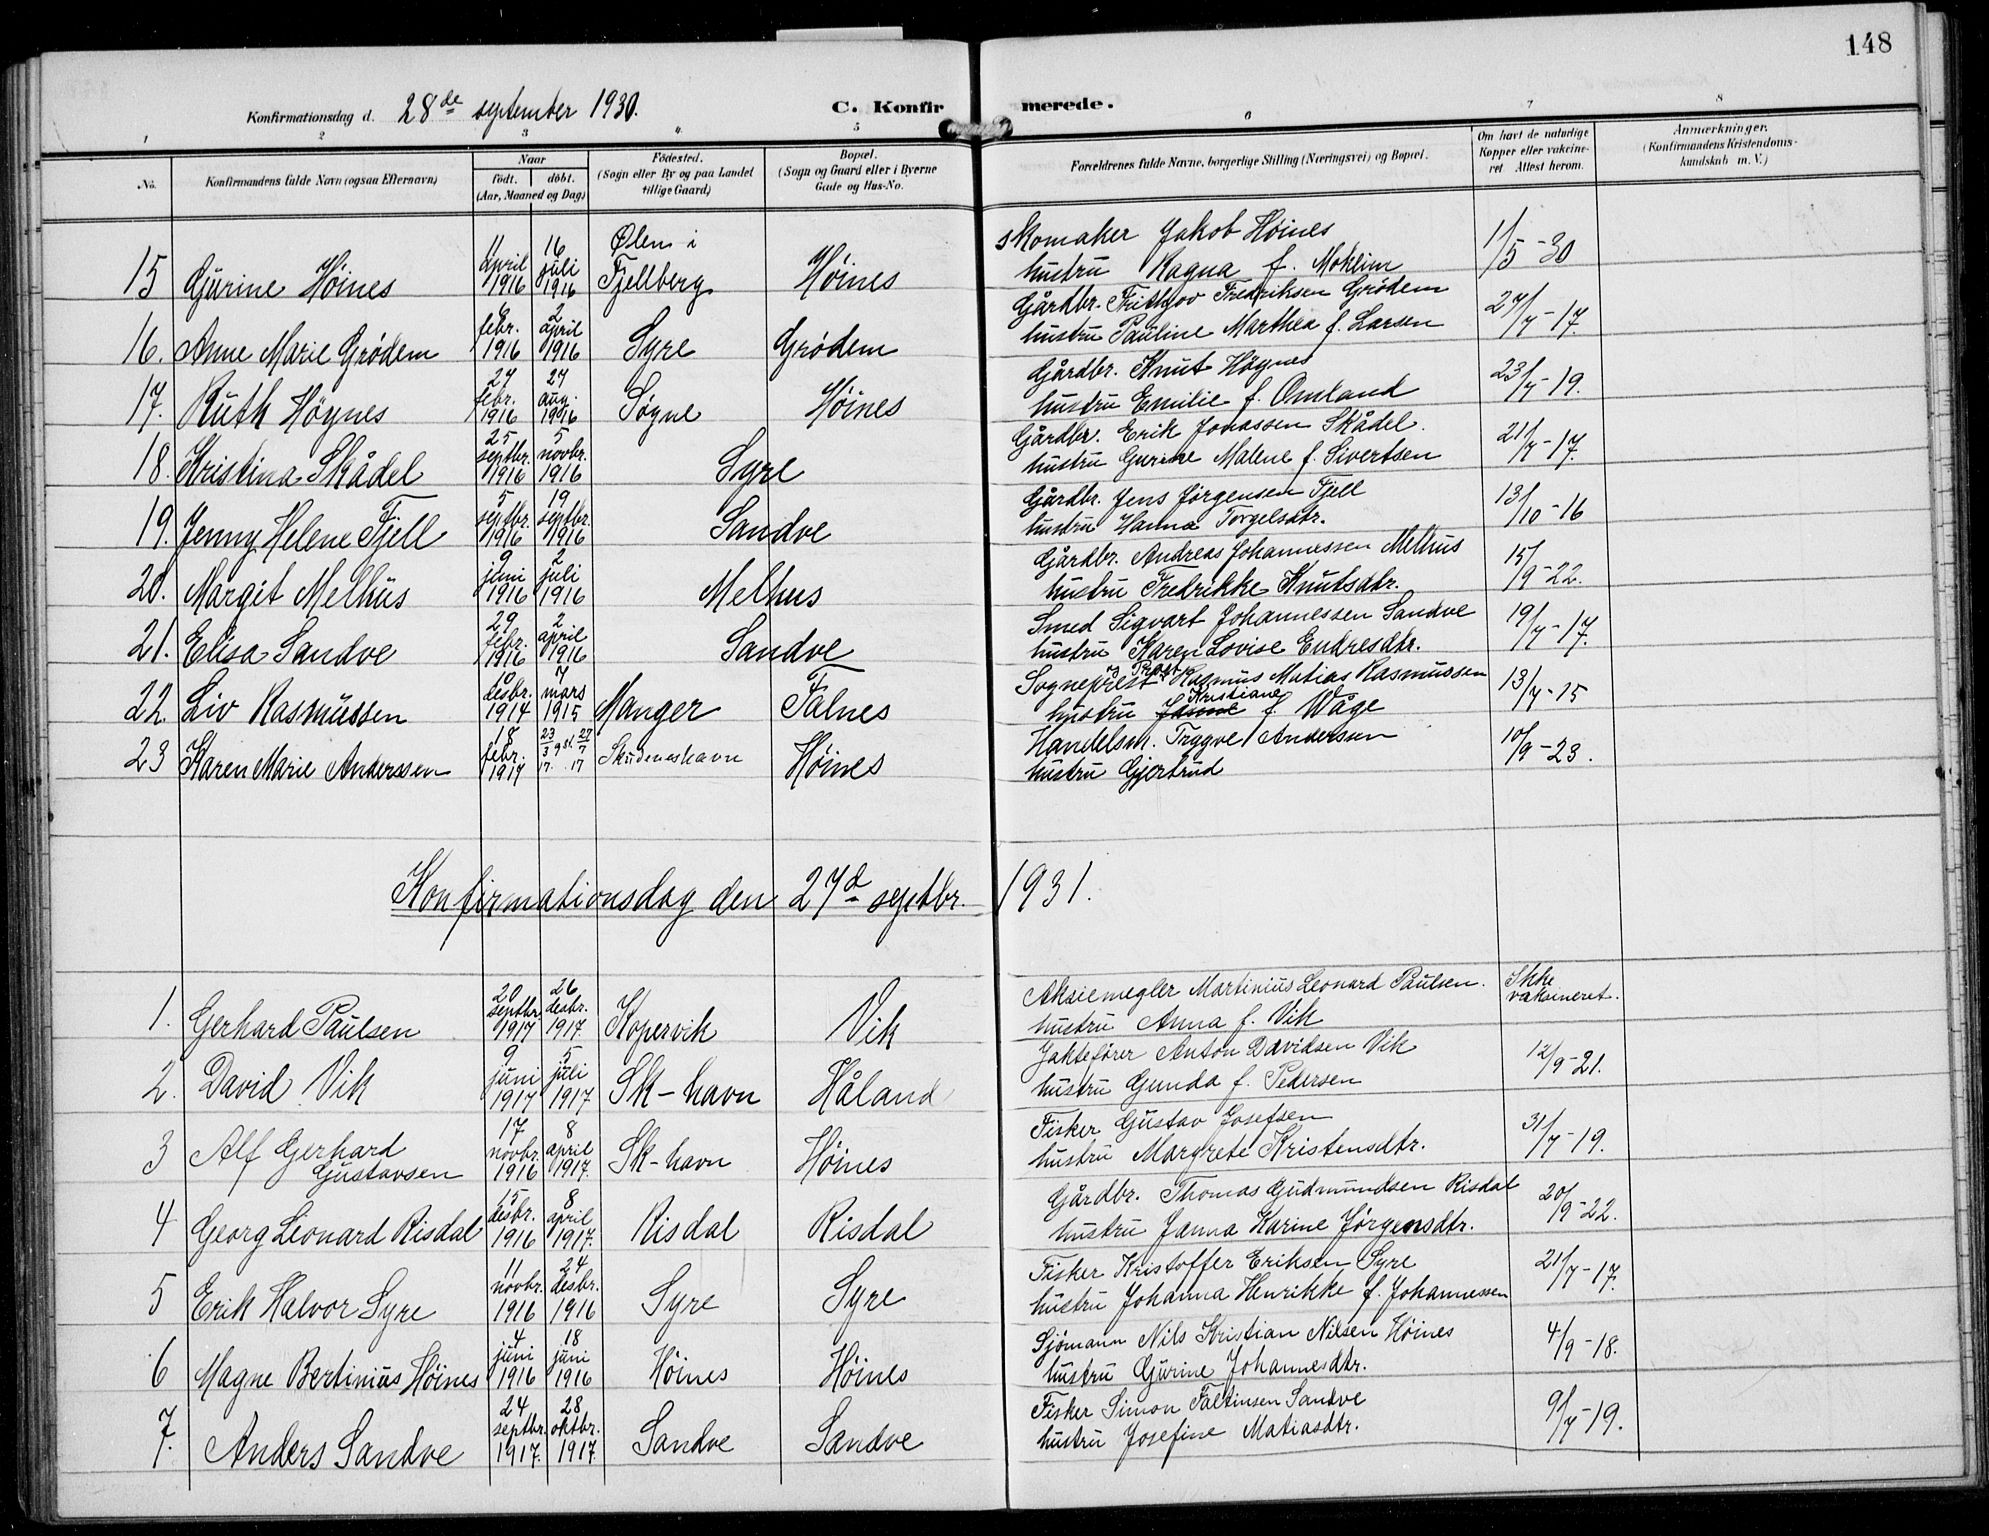 148
Konfirmationsdag d. 28de september 1930. C. Konfirmerede.
1 2 3 4 5 6 7 8
No.
Konfirmandens fulde Navn (ogsaa Efternavn)
Naar
födt. döbt.
(Aar, Maaned og Dag)
Födested.
(Sogn eller By og paa Landet
tillige Gaard)
Bopæl.
(Sogn og Gaard eller i Byerne
Gade og Hus-No.
Forældrenes fulde Navne, borgerlige Stilling (Næringsvei) og Bopæl.
Om havt de naturlige
Kopper eller vakcine-
ret Attest herom.
Anmærkninger.
(Konfirmandens Kristendoms-
kundskab m. V.)
15 Gurine Höines 11 april 1916 16 juli 1916 Ølen i Fjellberg Höines
skomaker Jakob Höines
hustru Ragna f. Mokleim 11/5-30
16. Anne Marie Grödem 6 febr. 1916 2 april 1916 Syre Grödem
Gårdbr. Frithjov Fredriksen Grödem
hustru Pauline Marthea f. Larsen 27/7-17.
17. Ruth Högnes 27 febr. 1916 27 aug. 1916 Søgne Höines
Gårdbr. Knut Högnes
hustru Emilie f. Omland 23/7-19.
18. Kristina Skådel 25 septbr. 1916 5 novbr. 1916 Syre
Gårdbr. Erik Jonassen Skådel.
hustru Gurine Malene f. Sivertsen 21/7-17.
19. Jenny Helene Fjell 5 septbr. 1916 19 septbr. 1916 Sandve
Gårdbr. Jens Jörgensen Fjell
hustru Hanna Torgelsdtr. 13/10-16
20. Margit Melhus 9 juni 1916 2 juli 1916 Melhus
Gårdbr. Andreas Johannessen Melhus
hustru Fredrikke Knutsdtr. 15/9-22.
21. Elisa Sandve 29 febr. 1916 2 april 1916 Sandve
Smed Sigvart Johannessen Sandve
hustru Karen Lovise Endresdtr. 19/7-17.
22. Liv Rasmussen desbr. 1914 7 mars 1915 Manger Falnes
Sogneprest og Prost Rasmus Matias Rasmussen
hustru Kristiane f. Wåge 13/7-15
23 Karen Marie Anderssen 18 febr. 1917 23/3 17. st. 27/7 17 Skudeneshavn Höines
Handelsm. Trygve Anderssen
hustru Gjertrud 10/9-23.
Konfirmationsdag den 27d septbr. 1931.
1. Gerhard Paulsen 20 septbr. 1917 26 desbr. 1917. Kopervik Vik
Aksiemegler Martinius Leonard Paulsen.
hustru Anna f. Vik Ikke vaksineret.
2. David Vik 9 juni 1917 5 juli 1917. Sk-havn Håland
Jakteförer Anton Davidsen Vik
hustru Gunda f. Pedersen 12/9-21.
3 Alf Gerhard Gustavsen 17 novbr. 1916 8 april 1917. Sk-havn Höines
Fisker Gustav Josefsen
hustru Margrete Kristensdtr. 31/7-19.
4 Georg Leonard Risdal 15 desbr. 1916 8 april 1917. Risdal Risdal
Gårdbr. Thomas Gudmundsen Risdal
hustru Janna Karine Jörgensdtr. 20/9-22.
5 Erik Halvor Syre 11 novbr. 1916 24 desbr. 1916 Syre Syre
Fisker Kristoffer Eriksen Syre
hustru Johanna Henrikke f. Johannessen 21/7-17.
6 Magne Bertinius Höines 4 juni 1916 18 juni 1916 Höines Höines
Sjömann Nils Kristian Nilsen Höines
hustru Gurine Johannesdtr. 4/9-18.
7. Anders Sandve 24 septbr. 1917. 28 oktbr. 1917. Sandve Sandve
Fisker Simon Faltinsen Sandve
hustru Josefine Matiasdtr. 9/7-19.